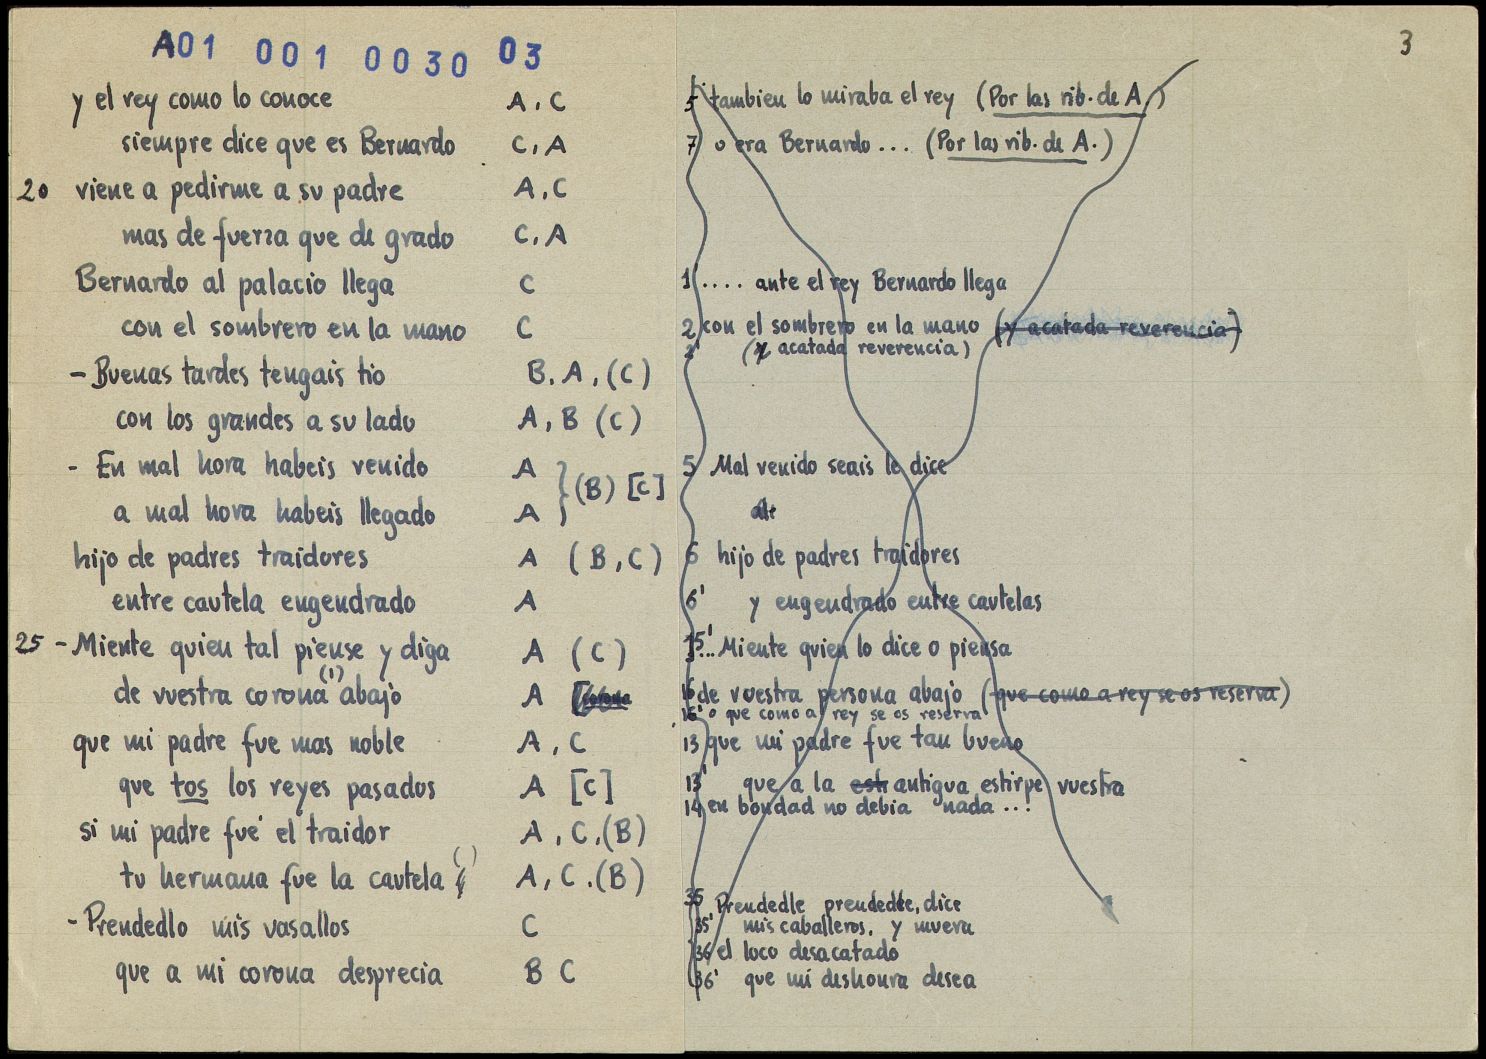 A01 001 0030 03
3
y el rey como lo conoce A, C
siempre dice que es Bernardo C, A
20 viene a pedirme a su padre A, C
mas de fuerza que de grado C, A
Bernardo al palacio llega C
con el sombrero en la mano C
- Buenas tardes tengais tio B, A, (C)
con los grandes a su lado A, B (C)
- En mal hora habeis venido A
a mal hora habeis llegado A } (B) [C]
hijo de padres traidores A (B, C)
entre cautela engendrado A
25 - Miente quien tal piense y diga A (C)
de vuestra corona (1) abajo A
que mi padre fue mas noble A, C
que tos los reyes pasados A [C]
si mi padre fué el traidor A, C, (B)
tu hermana fue la cautela ( ) A, C, (B)
- Prendedlo mis vasallos C
que a mi corona desprecia B C
5 tambien lo miraba el rey (Por las rib. de A.)
7 o era Bernardo ... (Por las rib. de A.)
1' .... ante el rey Bernardo llega
2 con el sombrero en la mano (y acatada reverencia)
2' (y acatada reverencia)
5 Mal venido seais le dice
6 hijo de padres traidores
6' y engendrado entre cautelas
15' ... Miente quien lo dice o piensa
16 de vuestra persona abajo (que como a rey se os reserva)
16' o que como a rey se os reserva
13 que mi padre fue tan bueno
13' que a la est antigua estirpe vuestra
14 en bondad no debia nada ...!
35 Prendedle prendedle, dice
35' mis caballeros, y muera
36 el loco desacatado
36' que mi deshonra desea